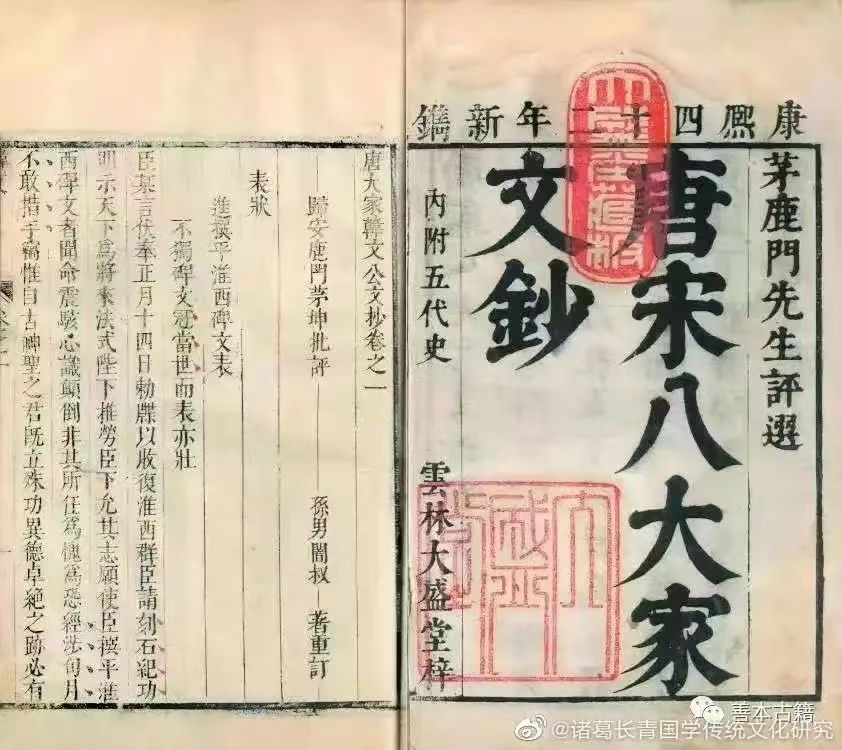 康熙四十二年新鐫
茅鹿門先生評選
唐宋八大家
文鈔
內附五代史
雲林大盛堂梓
唐大家韓文公文抄卷之一
歸安鹿門茅坤批評
孫男闇叔一著重訂
表狀
進撰平淮西碑文表
不獨碑文冠當世而表亦壯
臣某言伏奉正月十四日勅牒以收復淮西群臣請刻石紀功
明示天下為將來法式陛下推勞臣下允其志願使臣撰平淮
西碑文者聞命震駭心識顛倒非其所任為愧為恐經涉旬月
不敢措手竊惟自古神聖之君既立殊功異德卓絕之跡必有
大盛堂
善本古籍
@诸葛长青国学传统文化研究